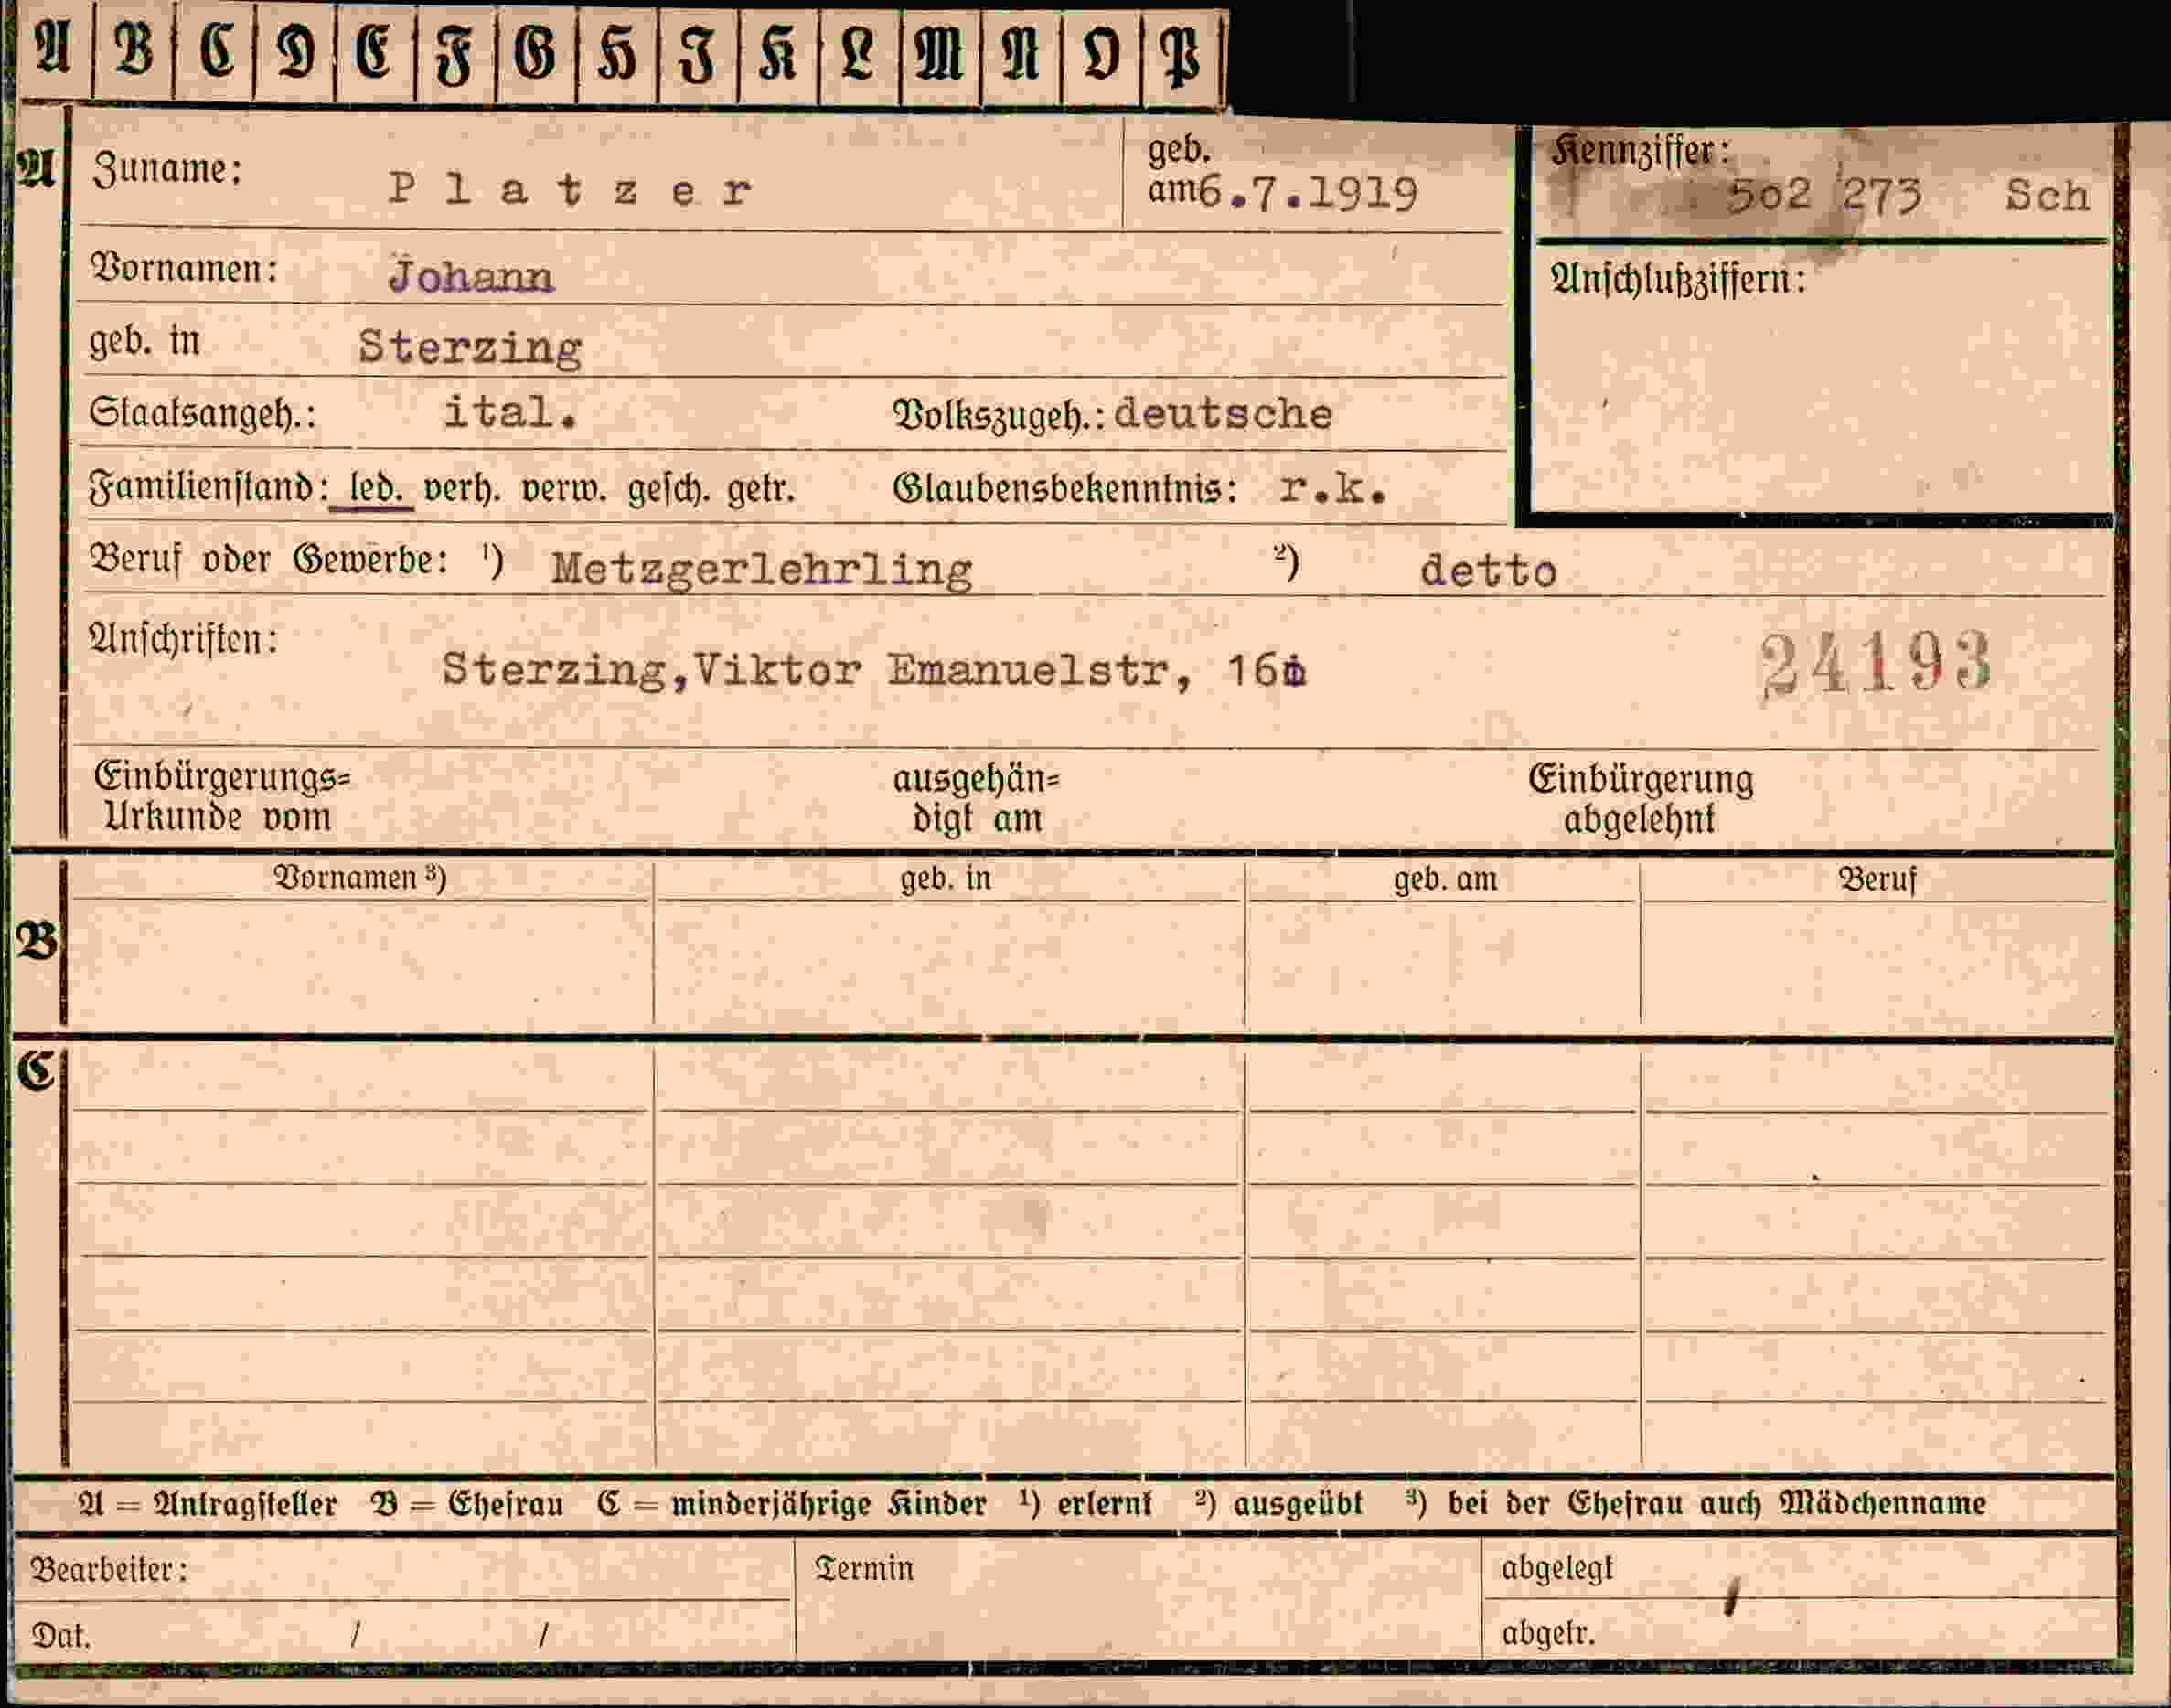 A B C D E F G H I K L M N O P
A Zuname: Platzer geb. am 6.7.1919 Kennziffer: 502 273 Sch
Vornamen: Johann Anschlußziffern:
geb. in Sterzing
Staatsangeh.: ital. Volkszugeh.: deutsche
Familienstand: led. verh. verw. gesch. getr. Glaubensbekenntnis: r.k.
Beruf oder Gewerbe: ¹) Metzgerlehrling ²) detto
Anschriften: Sterzing,Viktor Emanuelstr, 16 24193
Einbürgerungs= ausgehän= Einbürgerung
Urkunde vom digt am abgelehnt
B Vornamen ³) geb. in geb. am Beruf
C
A = Antragsteller B = Ehefrau C = minderjährige Kinder ¹) erlernt ²) ausgeübt ³) bei der Ehefrau auch Mädchenname
Bearbeiter: Termin abgelegt
Dat. / / abgetr.